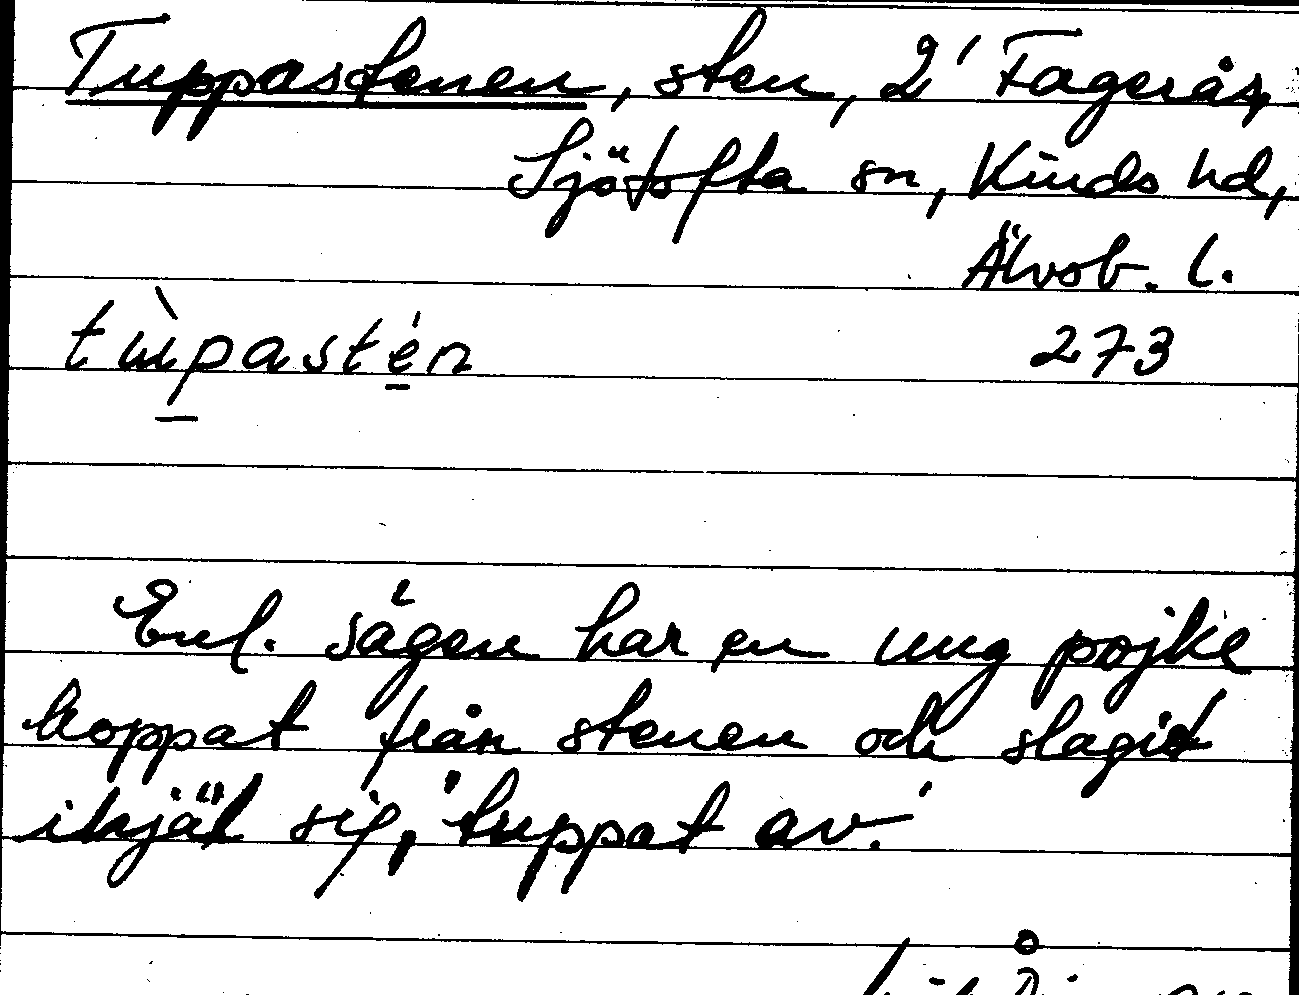 Tuppastenen, sten, 2' Fagerås,
Sjötofta sn, Kinds hd,
Älvsb. l.
tùpastén 273
Enl. sägen har en ung pojke
hoppat från stenen och slagit
ihjäl sig, 'tuppat av.'